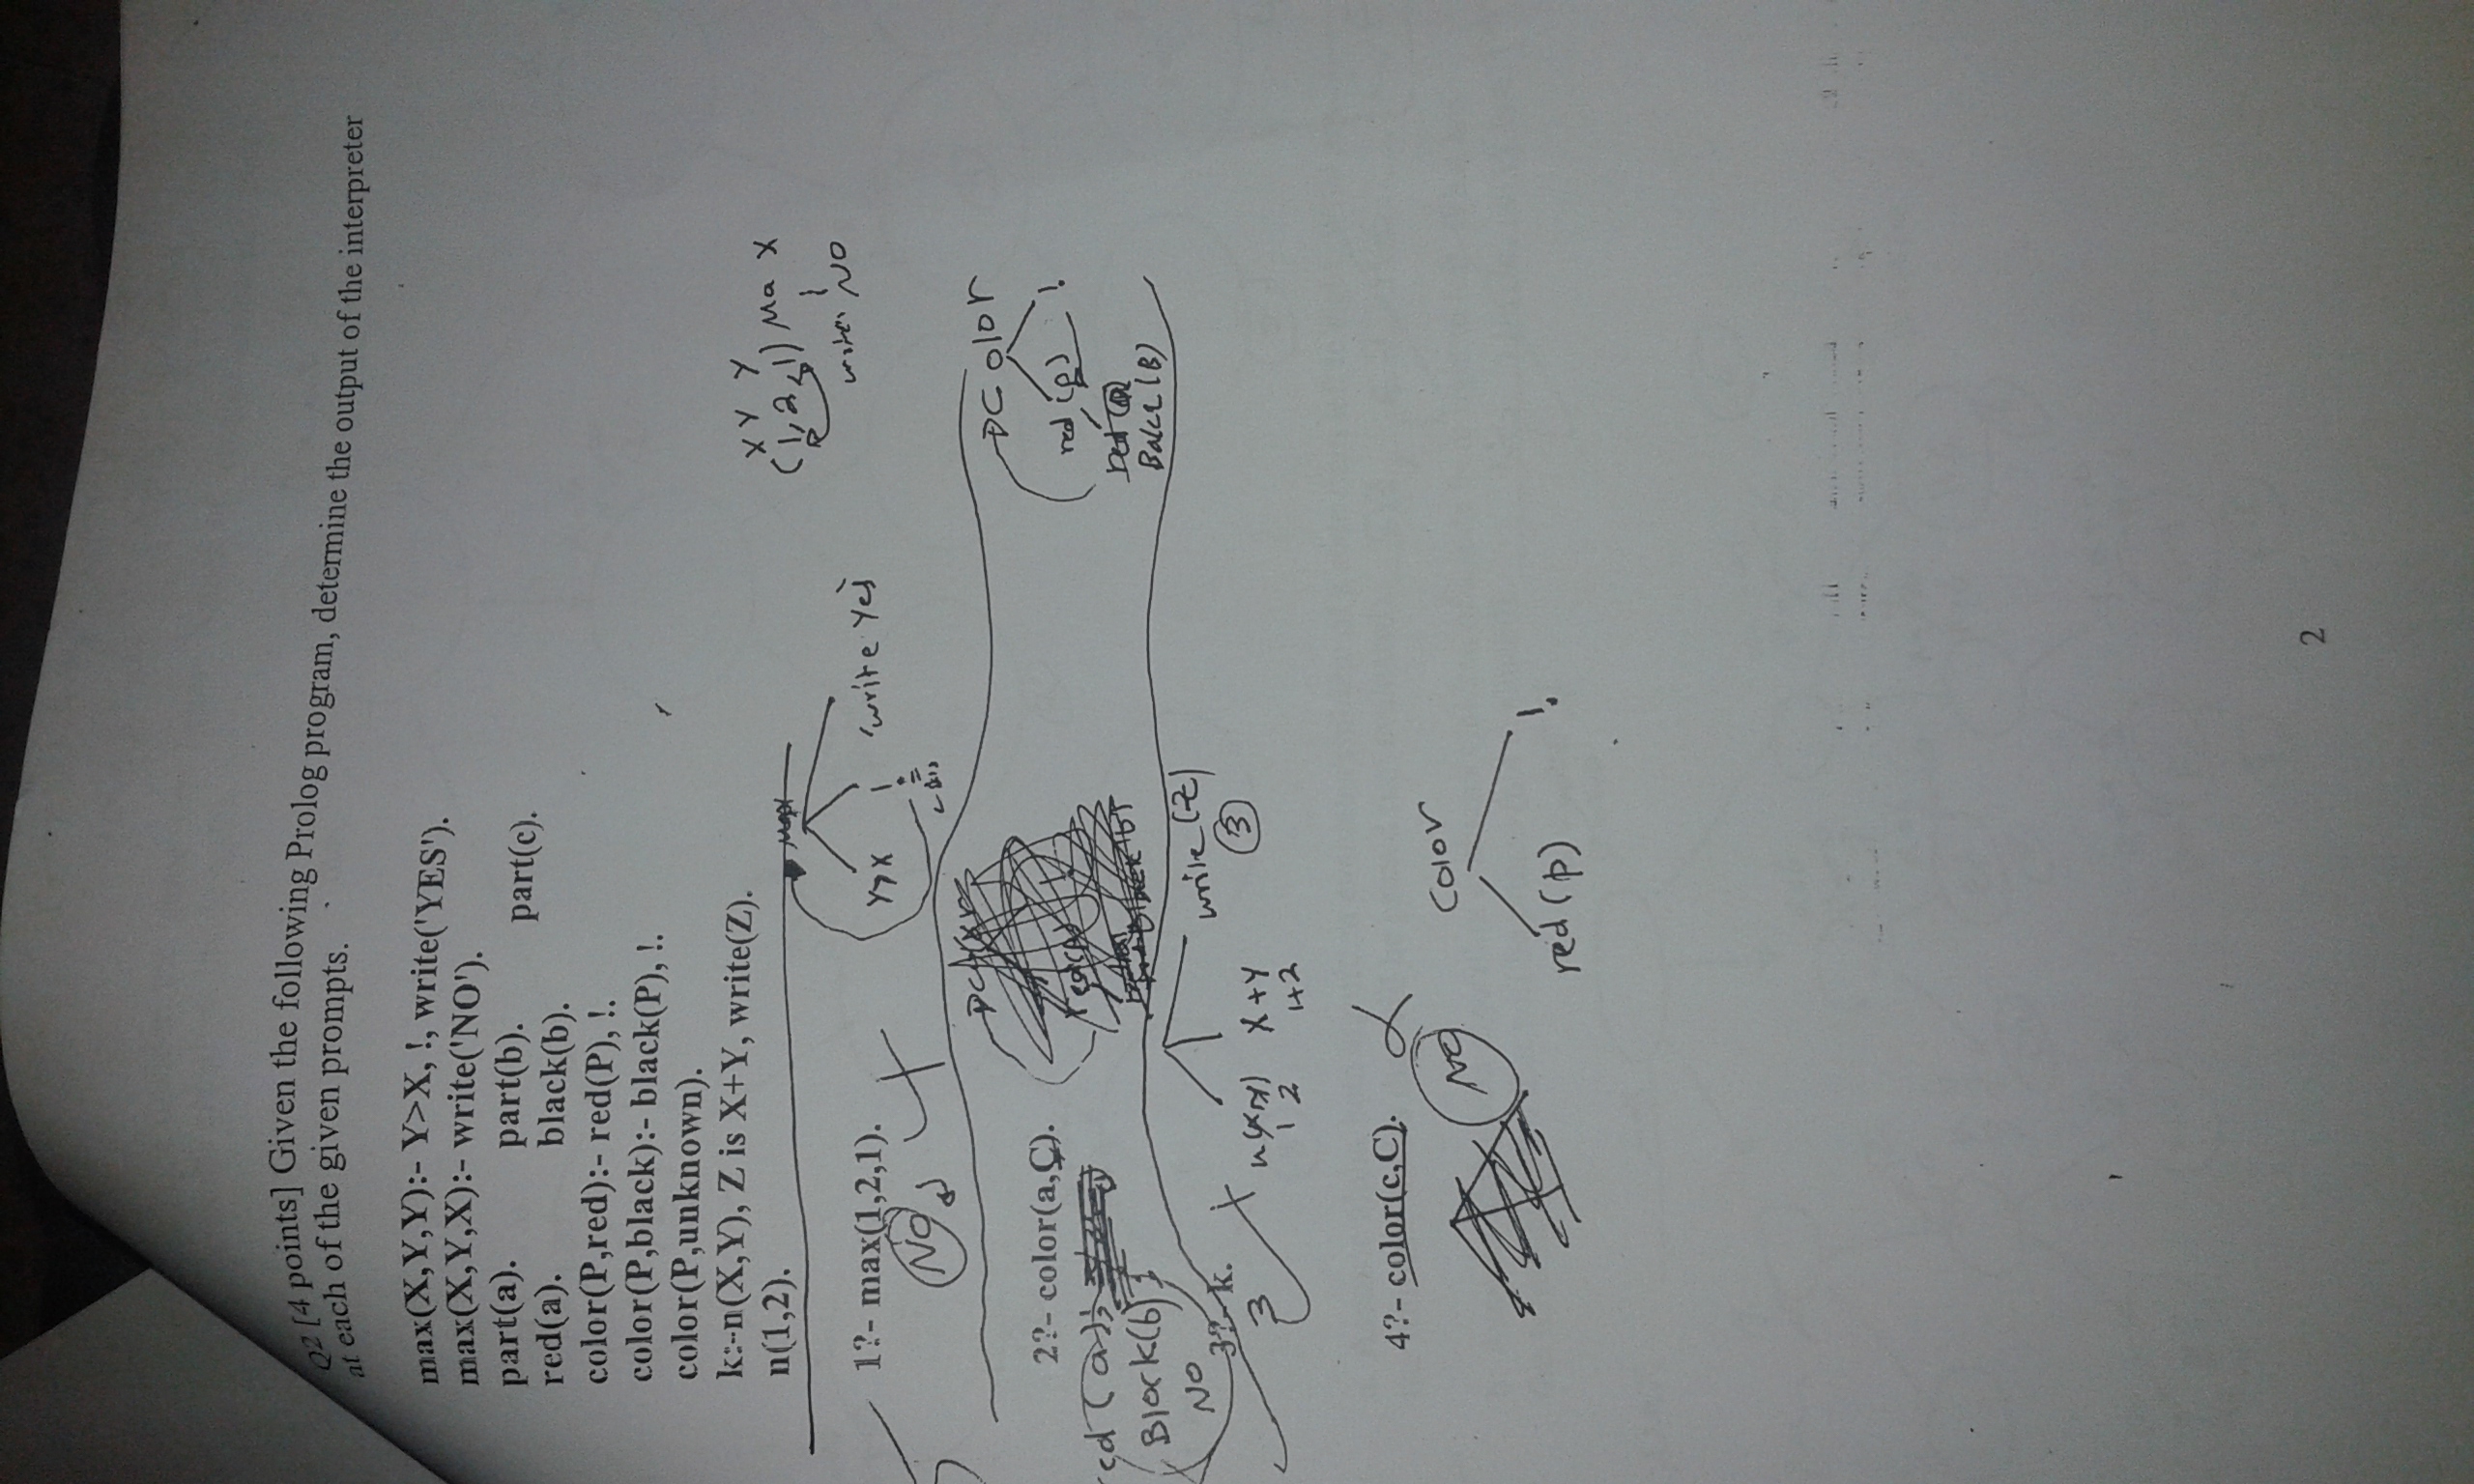 Q2 [4 points] Given the following Prolog program, determine the output of the interpreter
at each of the given prompts.
max(X,Y,Y):- Y>X, !, write('YES').
max(X,Y,X):- write('NO').
part(a). part(b). part(c).
red(a). black(b).
color(P,red):- red(P), !.
color(P,black):- black(P), !.
color(P,unknown).
k:-n(X,Y), Z is X+Y, write(Z).
n(1,2).
X Y Y
(1,2,1) Max X
write NO
Y>X ! write Yes
1?- max(1,2,1).
NO
2?- color(a,C).
red(a),
Black(b)
NO
color
red(p) !.
3?- k.
3
n(X,Y) X+Y write(Z)
1 2 1+2 3
4?- color(c,C).
NO
color
red(p) !.
2